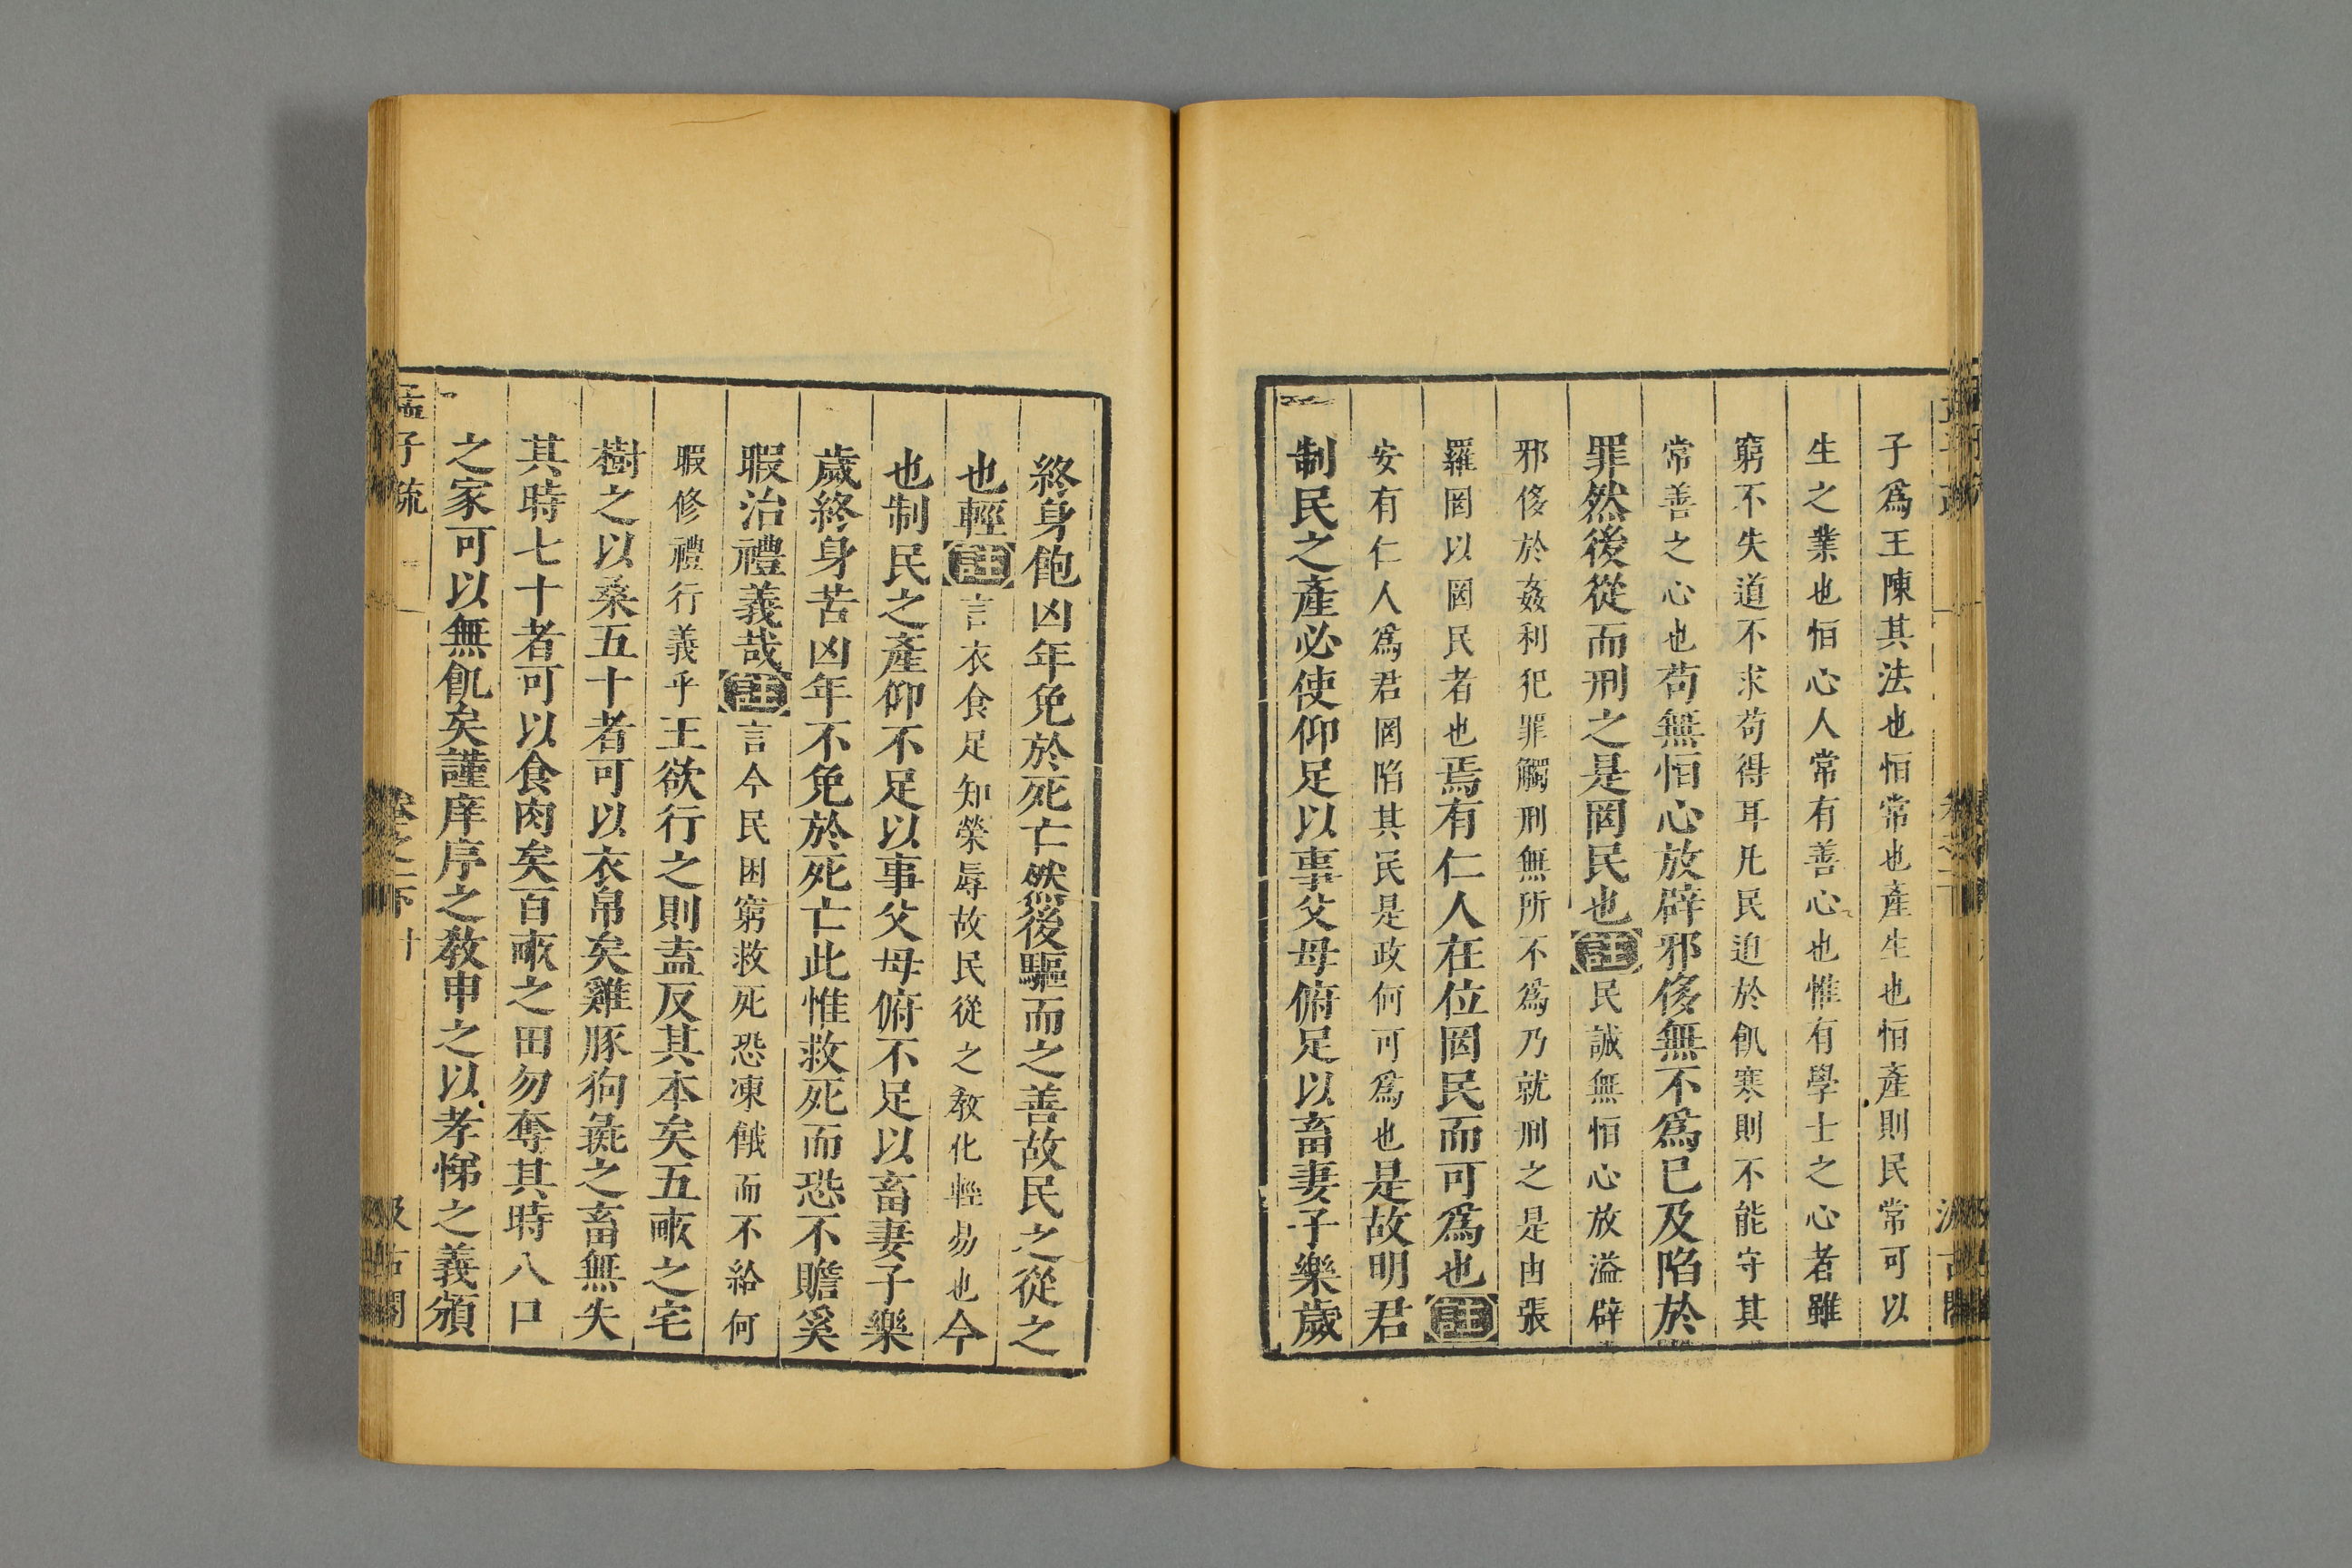 子爲王陳其法也恒常也產生也恒產則民常可以
生之業也恒心人常有善心也惟有學士之心者雖
窮不失道不求苟得耳凡民迫於飢寒則不能守其
常善之心也苟無恒心放辟邪侈無不爲已及陷於
罪然後從而刑之是罔民也註民誠無恒心放溢辟
邪侈於姦利犯罪觸刑無所不爲乃就刑之是由張
羅罔以罔民者也焉有仁人在位罔民而可爲也註
安有仁人爲君罔陷其民是政何可爲也是故明君
制民之產必使仰足以事父母俯足以畜妻子樂歲
終身飽凶年免於死亡然後驅而之善故民之從之
也輕註言衣食足知榮辱故民從之教化輕易也今
也制民之產仰不足以事父母俯不足以畜妻子樂
歲終身苦凶年不免於死亡此惟救死而恐不贍奚
暇治禮義哉註言今民困窮救死恐凍餓而不給何
暇修禮行義乎王欲行之則盍反其本矣五畝之宅
樹之以桑五十者可以衣帛矣雞豚狗彘之畜無失
其時七十者可以食肉矣百畝之田勿奪其時八口
之家可以無飢矣謹庠序之教申之以孝悌之義頒
孟子疏 卷之一下 十 汲古閣